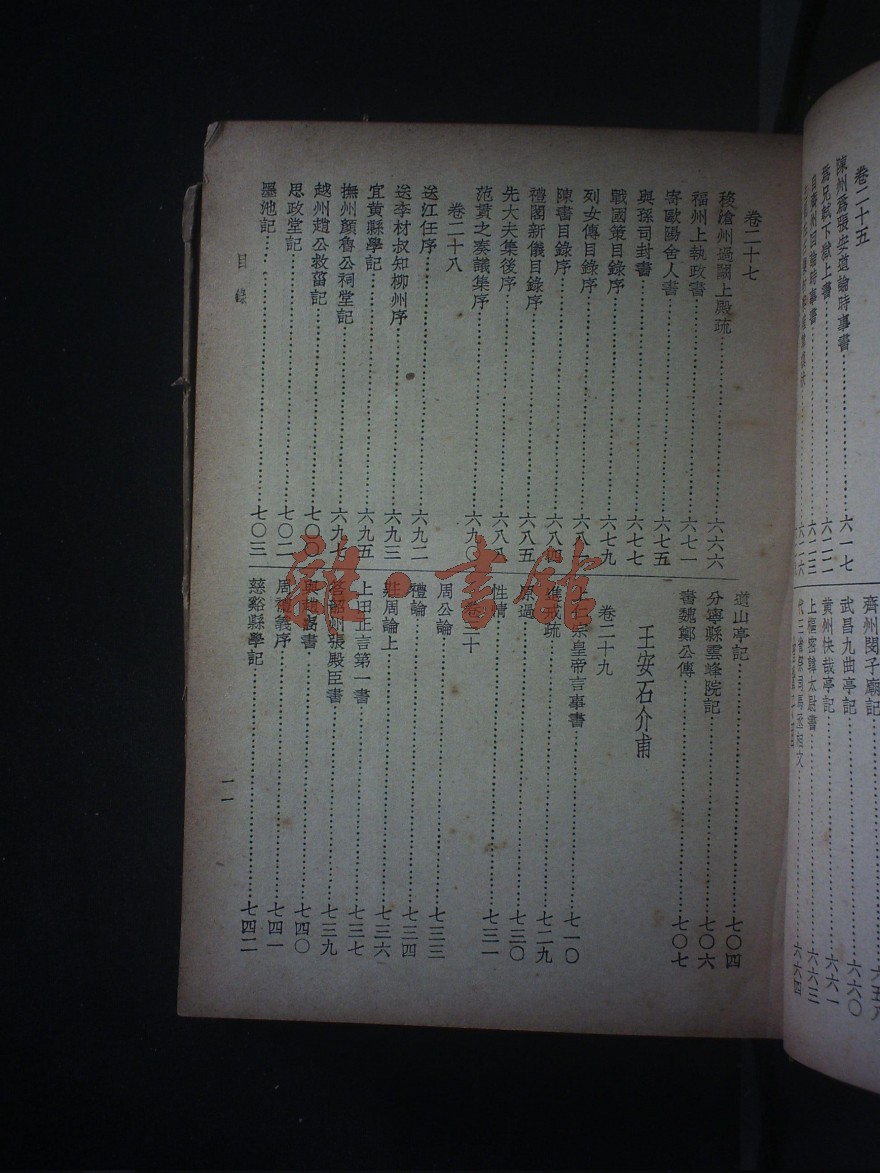 卷二十五
陳州爲張安道論時事書……六一七
爲兄軾下獄上書……六二二
自齊州回論時事書……六二三
六二六
齊州閔子廟記……六五八
武昌九曲亭記……六六〇
黃州快哉亭記……六六一
上樞密韓太尉書……六六三
代三省祭司馬丞相文……六六四
卷二十七
移滄州過闕上殿疏……六六六
福州上執政書……六七一
寄歐陽舍人書……六七五
與孫司封書……六七七
戰國策目錄序……六七九
列女傳目錄序……六八一
陳書目錄序……六八四
禮閣新儀目錄序……六八五
先大夫集後序……六八八
范貫之奏議集序……六九〇
卷二十八
送江任序……六九二
送李材叔知柳州序……六九三
宜黃縣學記……六九五
撫州顏魯公祠堂記……六九七
越州趙公救菑記……七〇〇
思政堂記……七〇二
墨池記……七〇三
道山亭記……七〇四
分寧縣雲峰院記……七〇六
書魏鄭公傳……七〇七
王安石介甫
卷二十九
上仁宗皇帝言事書……七一〇
進戒疏……七二九
原過……七三〇
性情……七三一
卷三十
周公論……七三三
禮論……七三四
莊周論上……七三六
上田正言第一書……七三七
答韶州張殿臣書……七三九
與趙卨書……七四〇
周禮義序……七四一
慈谿縣學記……七四二
目錄
一一
雜·書館